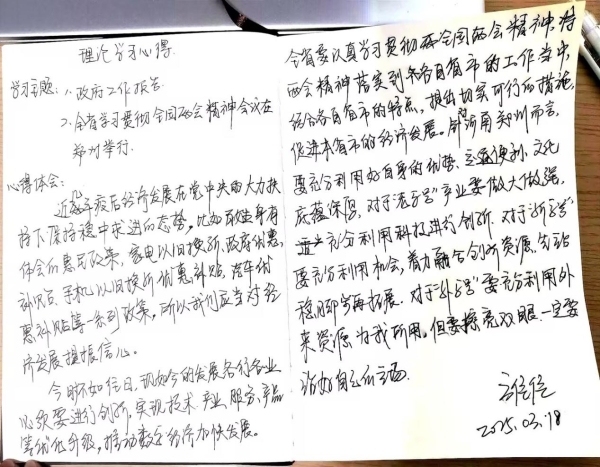 理论学习心得
学习主题：1、政府工作报告
2、全省学习贯彻全国两会精神会议在
郑州举行.
心得体会：
近几年疫后经济发展在党中央的大力扶
持下保持稳中求进的态势，比如在自身有
体会的惠民政策，家电以旧换新，政府优惠，
补贴，手机以旧换新优惠补贴，汽车优
惠补贴等一系列政策，所以我们应当对经
济发展提振信心。
今时不如往日，现如今的发展各行各业
必须要进行创新，实现技术、产业、服务、产品
等优化升级，推动数字经济加快发展。
全省要认真学习贯彻两全国两会精神，将
两会精神落实到各自省市的工作当中，
结合各自省市的特点，提出切实可行的措施，
促进本省市的经济发展。针对河南郑州而言，
要充分利用好自身的优势，交通便利，文化
底蕴深厚，对于"老字号"产业要做大做强，
充分利用科技进行创新，对于"新字号"
要充分利用机会，着力融合创新资源，先站
稳脚步再拓展，对于"外字号"要充分利用外
来资源为我所用。但要擦亮双眼一定要
站好自己的立场.
2025.03.18